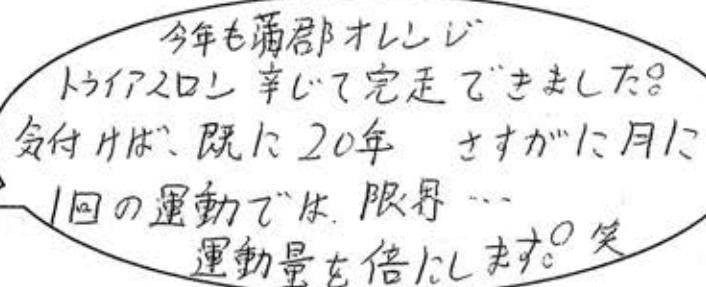 今年も蒲郡オレンジ
トライアスロン 辛じて完走できました。
気付けば、既に20年 さすがに月に
1回の運動では、限界…
運動量を倍にします。笑